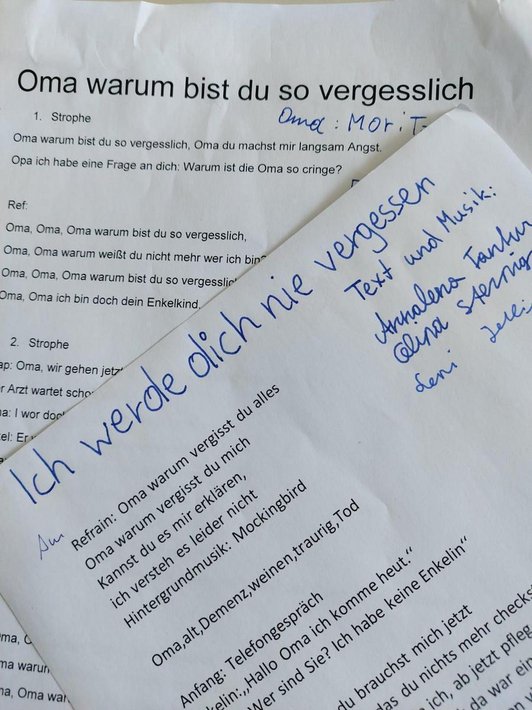 Oma warum bist du so vergesslich
1. Strophe
Oma: Mori
Oma warum bist du so vergesslich, Oma du machst mir langsam Angst.
Opa ich habe eine Frage an dich: Warum ist die Oma so cringe?
Ref:
Oma, Oma, Oma warum bist du so vergesslich,
Oma, Oma warum weißt du nicht mehr wer ich bin?
Oma, Oma, Oma warum bist du so vergesslic
Oma, Oma ich bin doch dein Enkelkind.
2. Strophe
ap: Oma, wir gehen jetz
r Arzt wartet scho
ma: I wor doc
kel: Er
ma, O
ma warun
ma, Oma war
Ich werde dich nie vergessen
Text und Musik:
Annalena
Leni
Refrain: Oma warum vergisst du alles
Oma warum vergisst du mich
Kannst du es mir erklären,
ich versteh es leider nicht
Hintergrundmusik: Mockingbird
Oma,alt,Demenz,weinen,traurig,Tod
Anfang: Telefongespräch
kelin:„Hallo Oma ich komme heut.“
Wer sind Sie? Ich habe keine Enkelin“
du brauchst mich jetzt
das du nichts mehr checks
ich, ab jetzt pfleg
da war ein